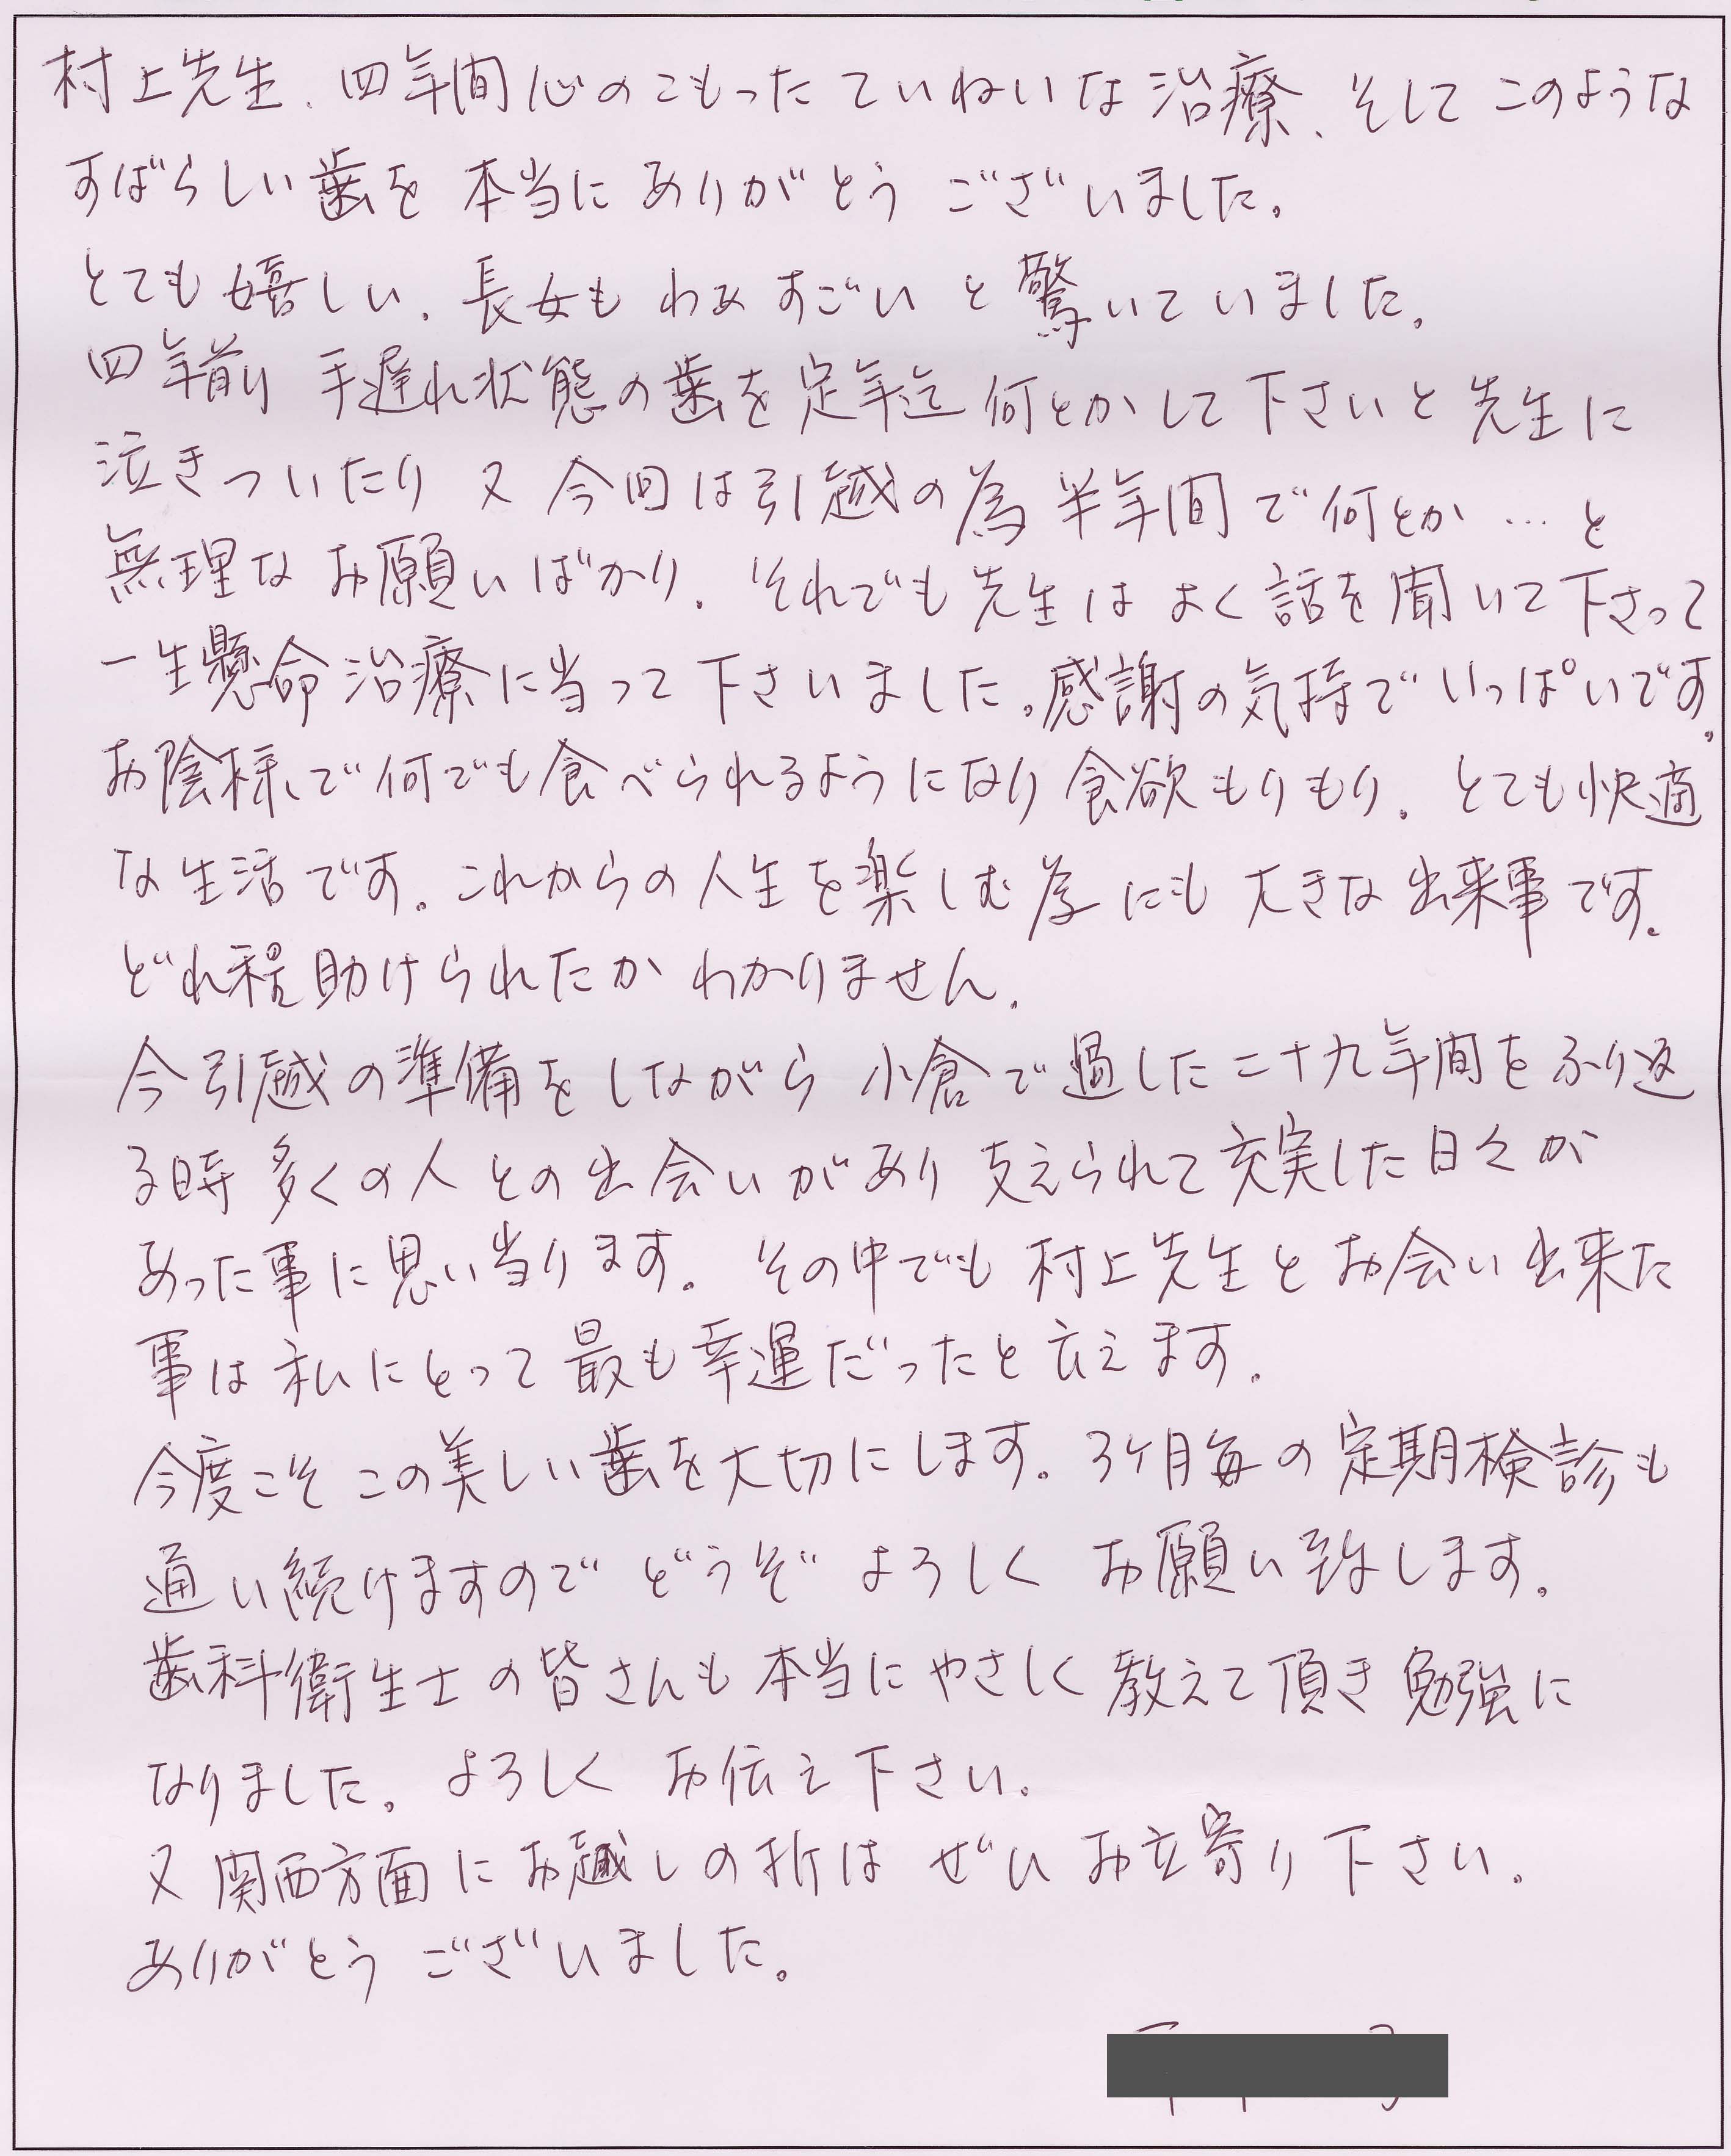 村上先生、四年間心のこもったていねいな治療、そしてこのような
すばらしい歯を本当にありがとうございました。
とても嬉しい、長女もわあすごいと驚いていました。
四年前り手遅れ状態の歯を定年迄何とかして下さいと先生に
泣きついたり又今回は引越の為半年間で何とか…と
無理なお願いばかり。それでも先生はよく話を聞いて下さって
一生懸命治療に当って下さいました。感謝の気持でいっぱいです。
お陰様で何でも食べられるようになり食欲もりもり。とても快適
な生活です。これからの人生を楽しむ為にも大きな出来事です。
どれ程助けられたかわかりません。
今引越の準備をしながら小倉で過した二十九年間をふり返
る時多くの人との出会いがあり支えられて充実した日々が
あった事に思い当ります。その中でも村上先生とお会い出来た
事は私にとって最も幸運だったと云えます。
今度こそこの美しい歯を大切にします。3ヶ月毎の定期検診も
通い続けますのでどうぞよろしくお願い致します。
歯科衛生士の皆さんも本当にやさしく教えて頂き勉強に
なりました。よろしくお伝え下さい。
又関西方面にお越しの折はぜひお立寄り下さい。
ありがとうございました。